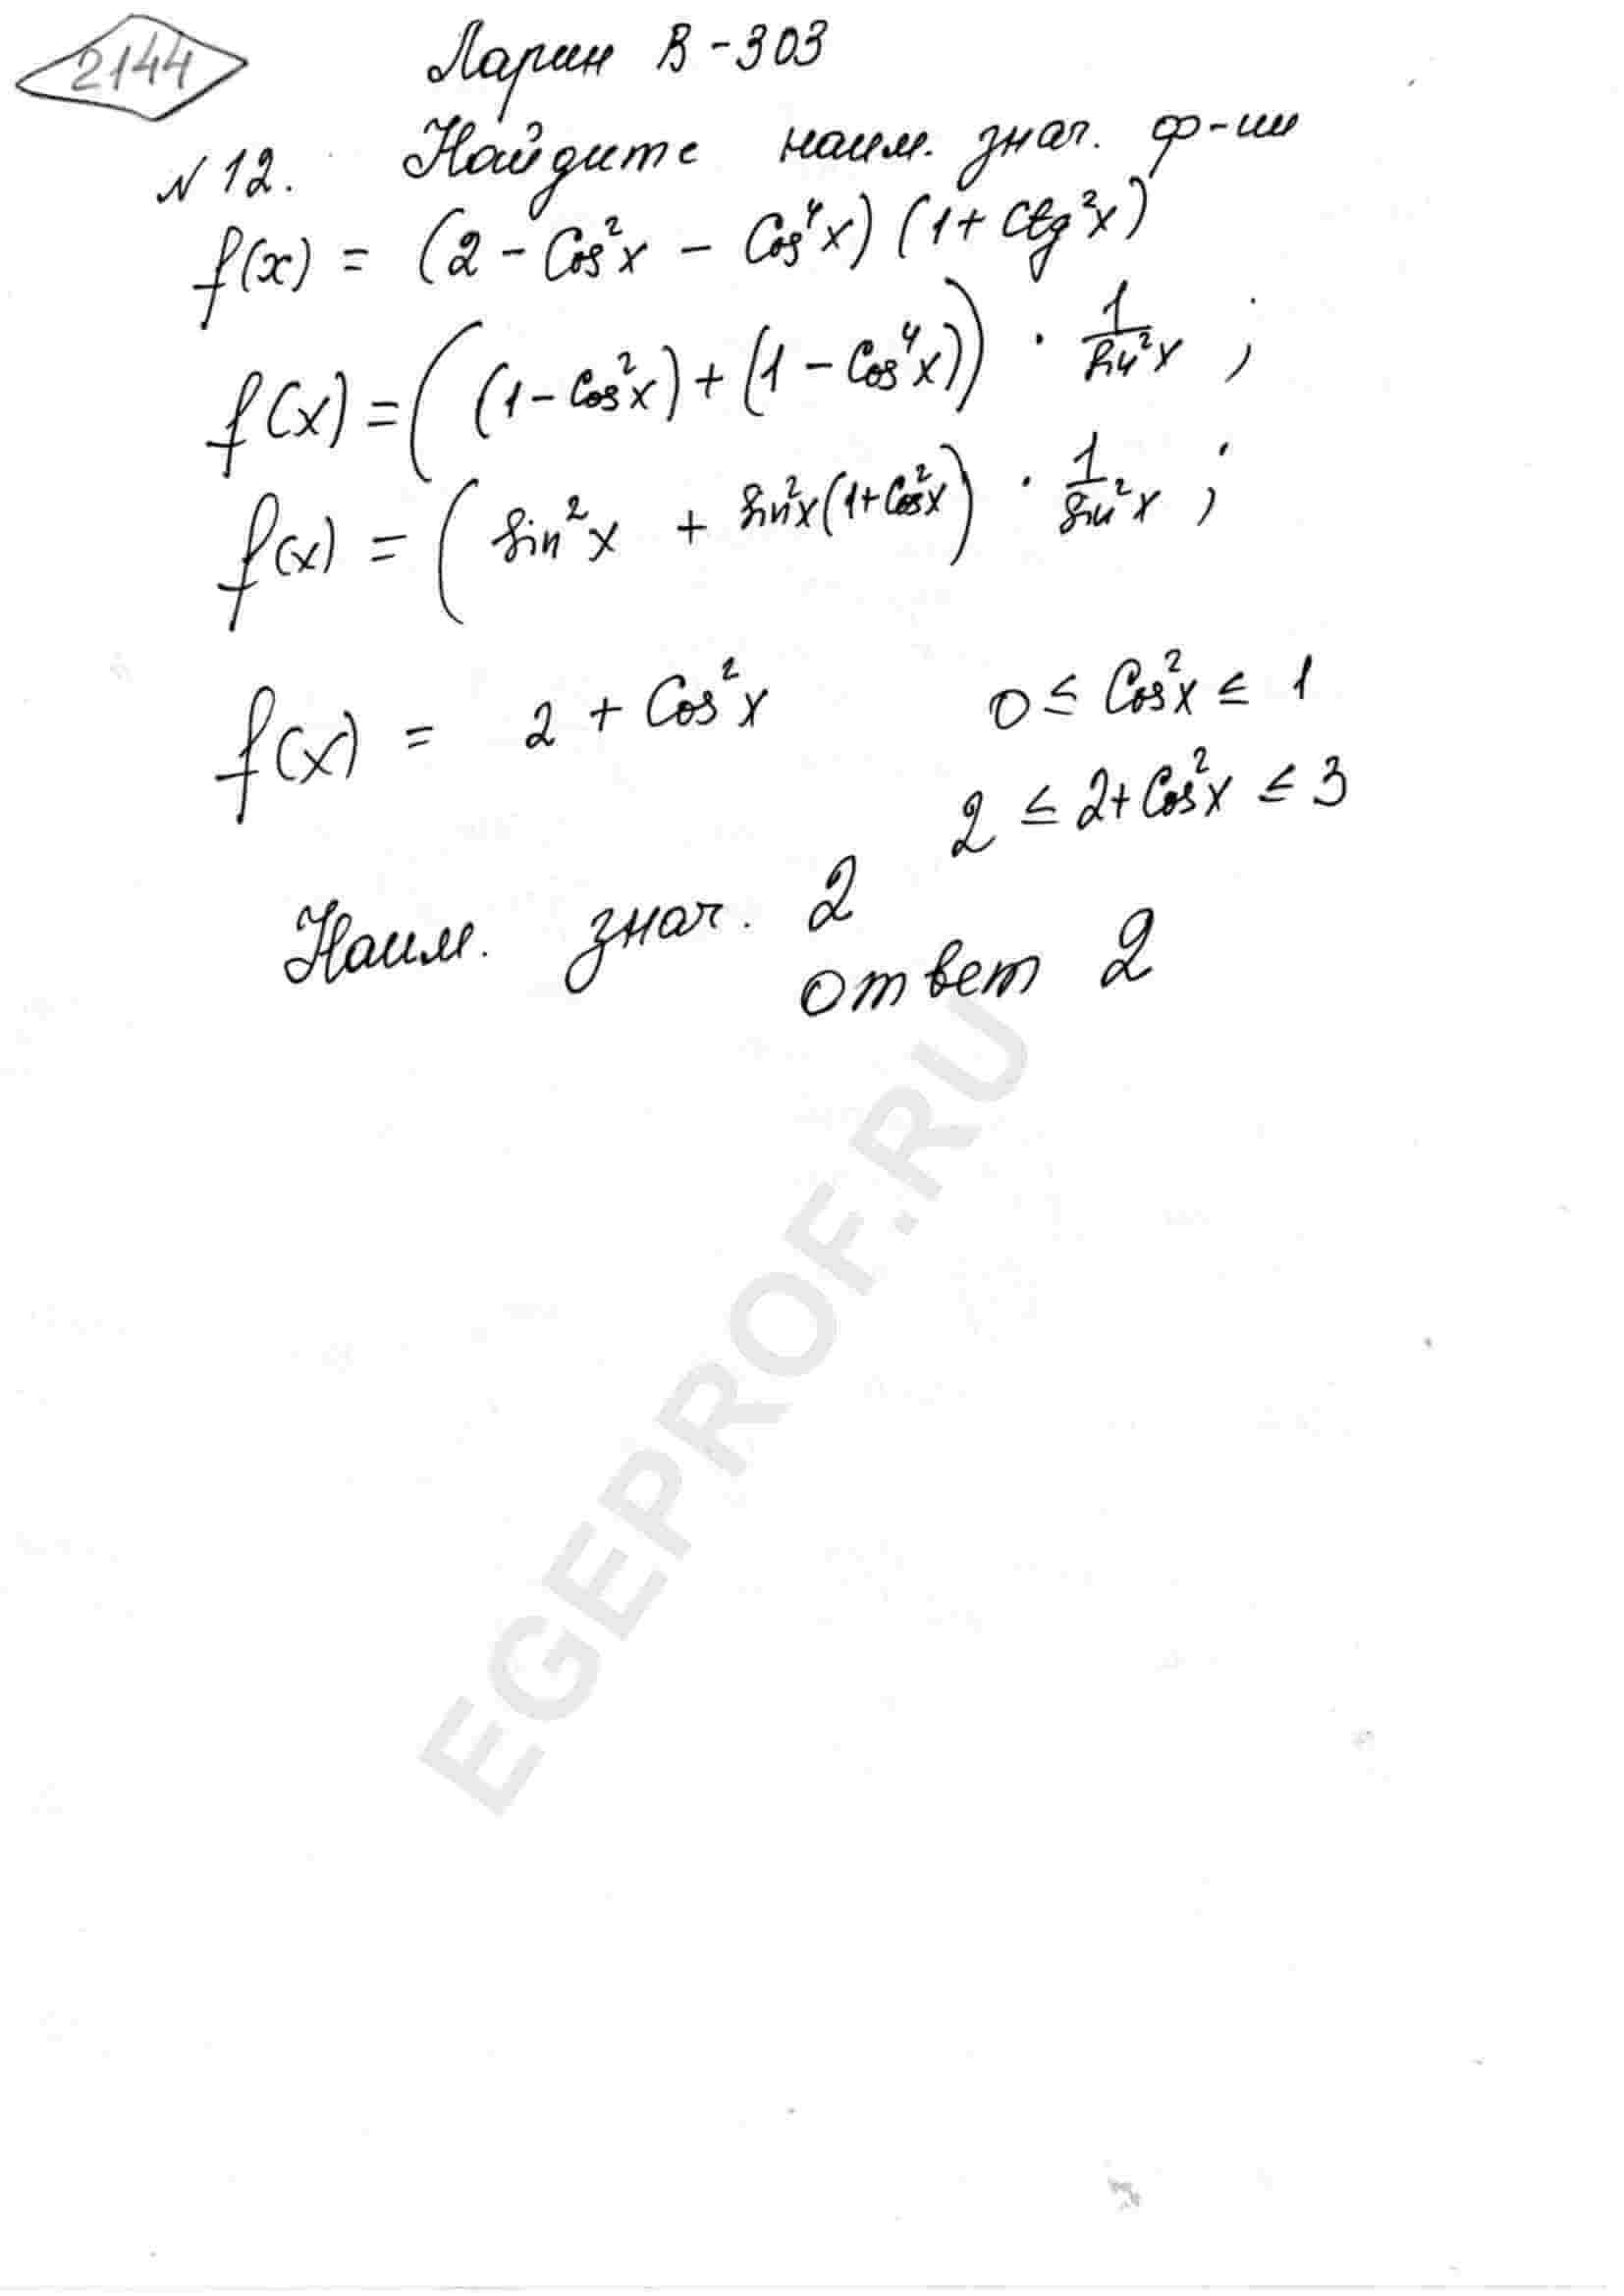 2144
Ларин В-303
N 12. Найдите наим. знач. ф-ии
f(x) = (2 - Cos²x - Cos⁴x) (1 + Ctg²x)
f(x) = ((1 - Cos²x) + (1 - Cos⁴x)) · 1/sin²x ;
f(x) = (sin²x + sin²x(1 + Cos²x)) · 1/sin²x ;
f(x) = 2 + Cos²x 0 ≤ Cos²x ≤ 1
2 ≤ 2 + Cos²x ≤ 3
Наим. знач. 2
ответ 2
EGEPROF.RU